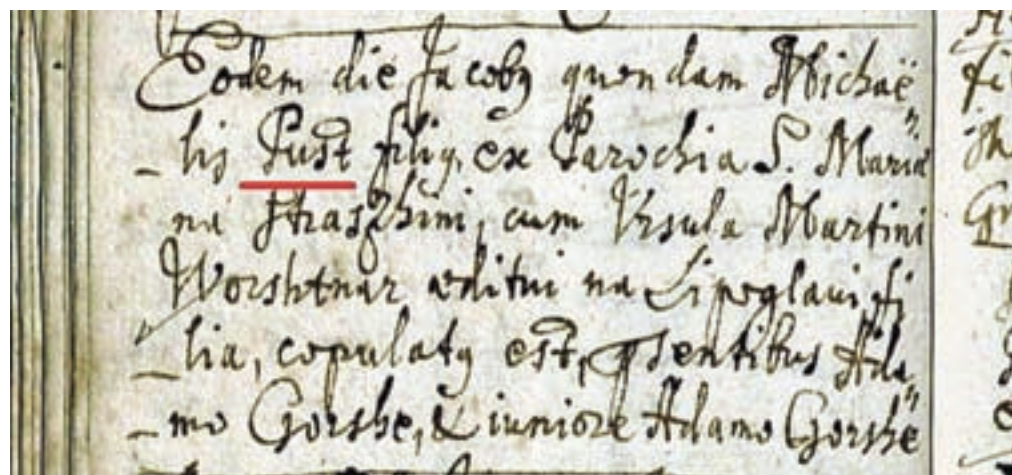 Eodem die Jacobꝰ quondam Michaë-
lis Pust filiꝰ, ex Parochia S. Mariæ
na Straszhini, cum Vrsula Martini
Worshtnar æditui na Lipoglaui fi-
lia, copulatꝰ est, pꝛsentibus Ada-
mo Gorshe, & iuniore Adamo Gorshe